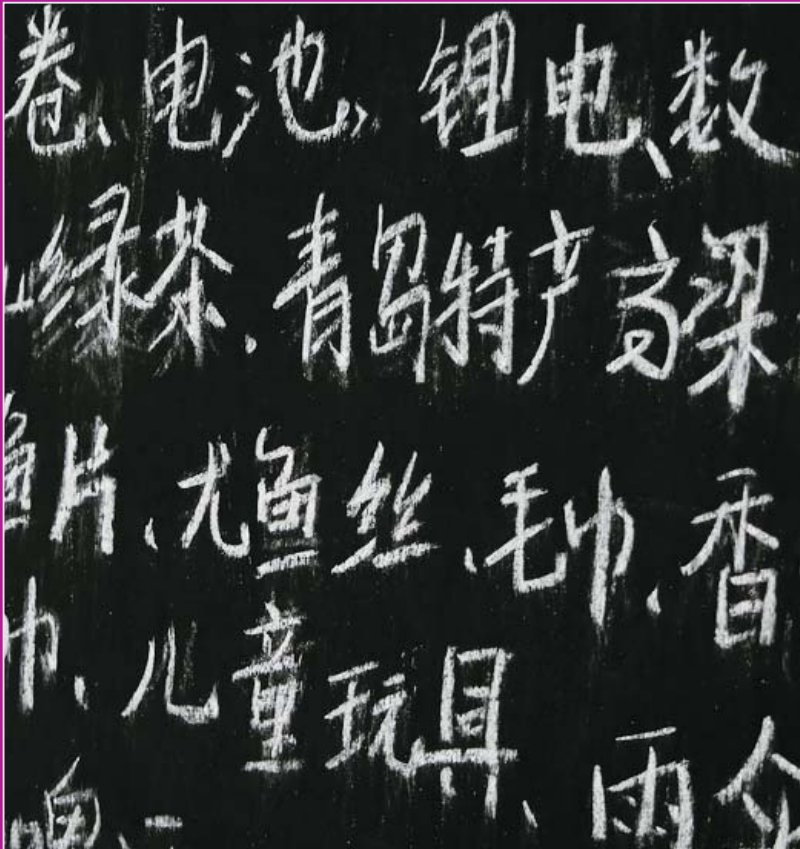 卷、电池、锂电、数
山绿茶、青岛特产高粱
鱼片、尤鱼丝、毛巾、香
巾、儿童玩具、雨伞